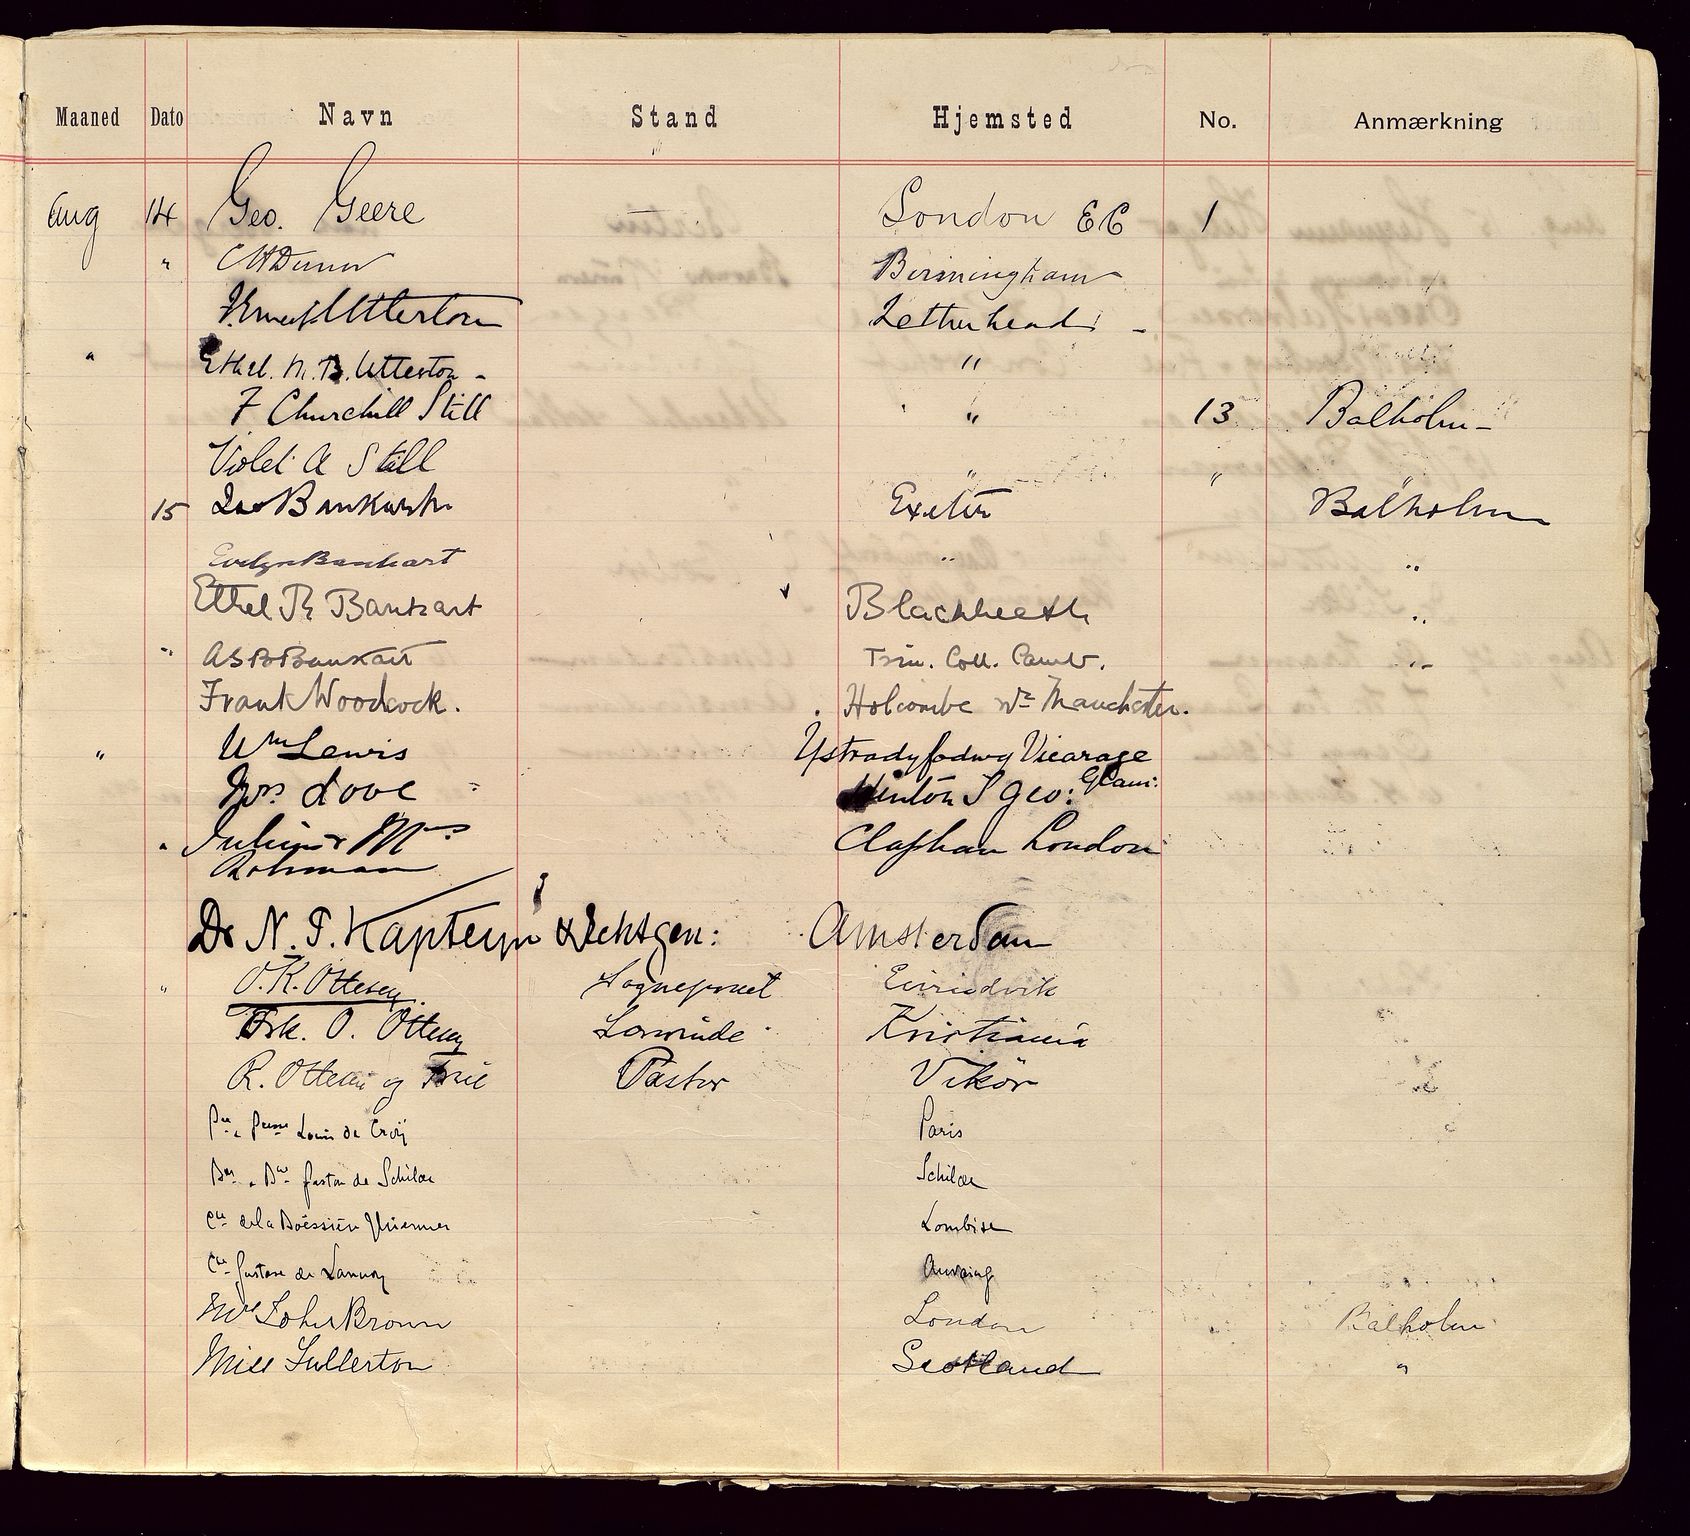 Maaned Dato Navn Stand Hjemsted No. Anmærkning
Aug 14 Geo. Geere London E C 1
" Birmingham
Utterton Letherhead -
" Ethel. M. B. Utterton - "
F Churchill Still " 13 Balholm -
Violet A Still " "
15 Bankart Exeter Balholm
Evelyn Bankart " "
Ethel R Bankart Blackheath "
" A S B Bankart Trin. Coll. Camb. "
Frank Woodcock. Holcombe Nr Manchester.
" Wm Lewis Ystradyfodwg Vicarage Glam:
Mrs Love Hinton S Geo:
" Julius & Mrs Clapham London
Rohman
Dr N. P. Kapteyn & Echtgen: Amsterdam
" O. K. Ottesen. Sogneprest Eivindvik
Frk. O. Ottesen Kristiania
R. Ottesen og Frue Pastor Vikör
Pce & Pcesse Louis de Croÿ Paris
Bon & Bne Gaston de Schilde Schilde
Cte de la Boëssière Thiennes Lombise
Cte Gustave de Lannoy Anvaing
Mrs John Brown London Balholm
Miss Fullerton Scotland "